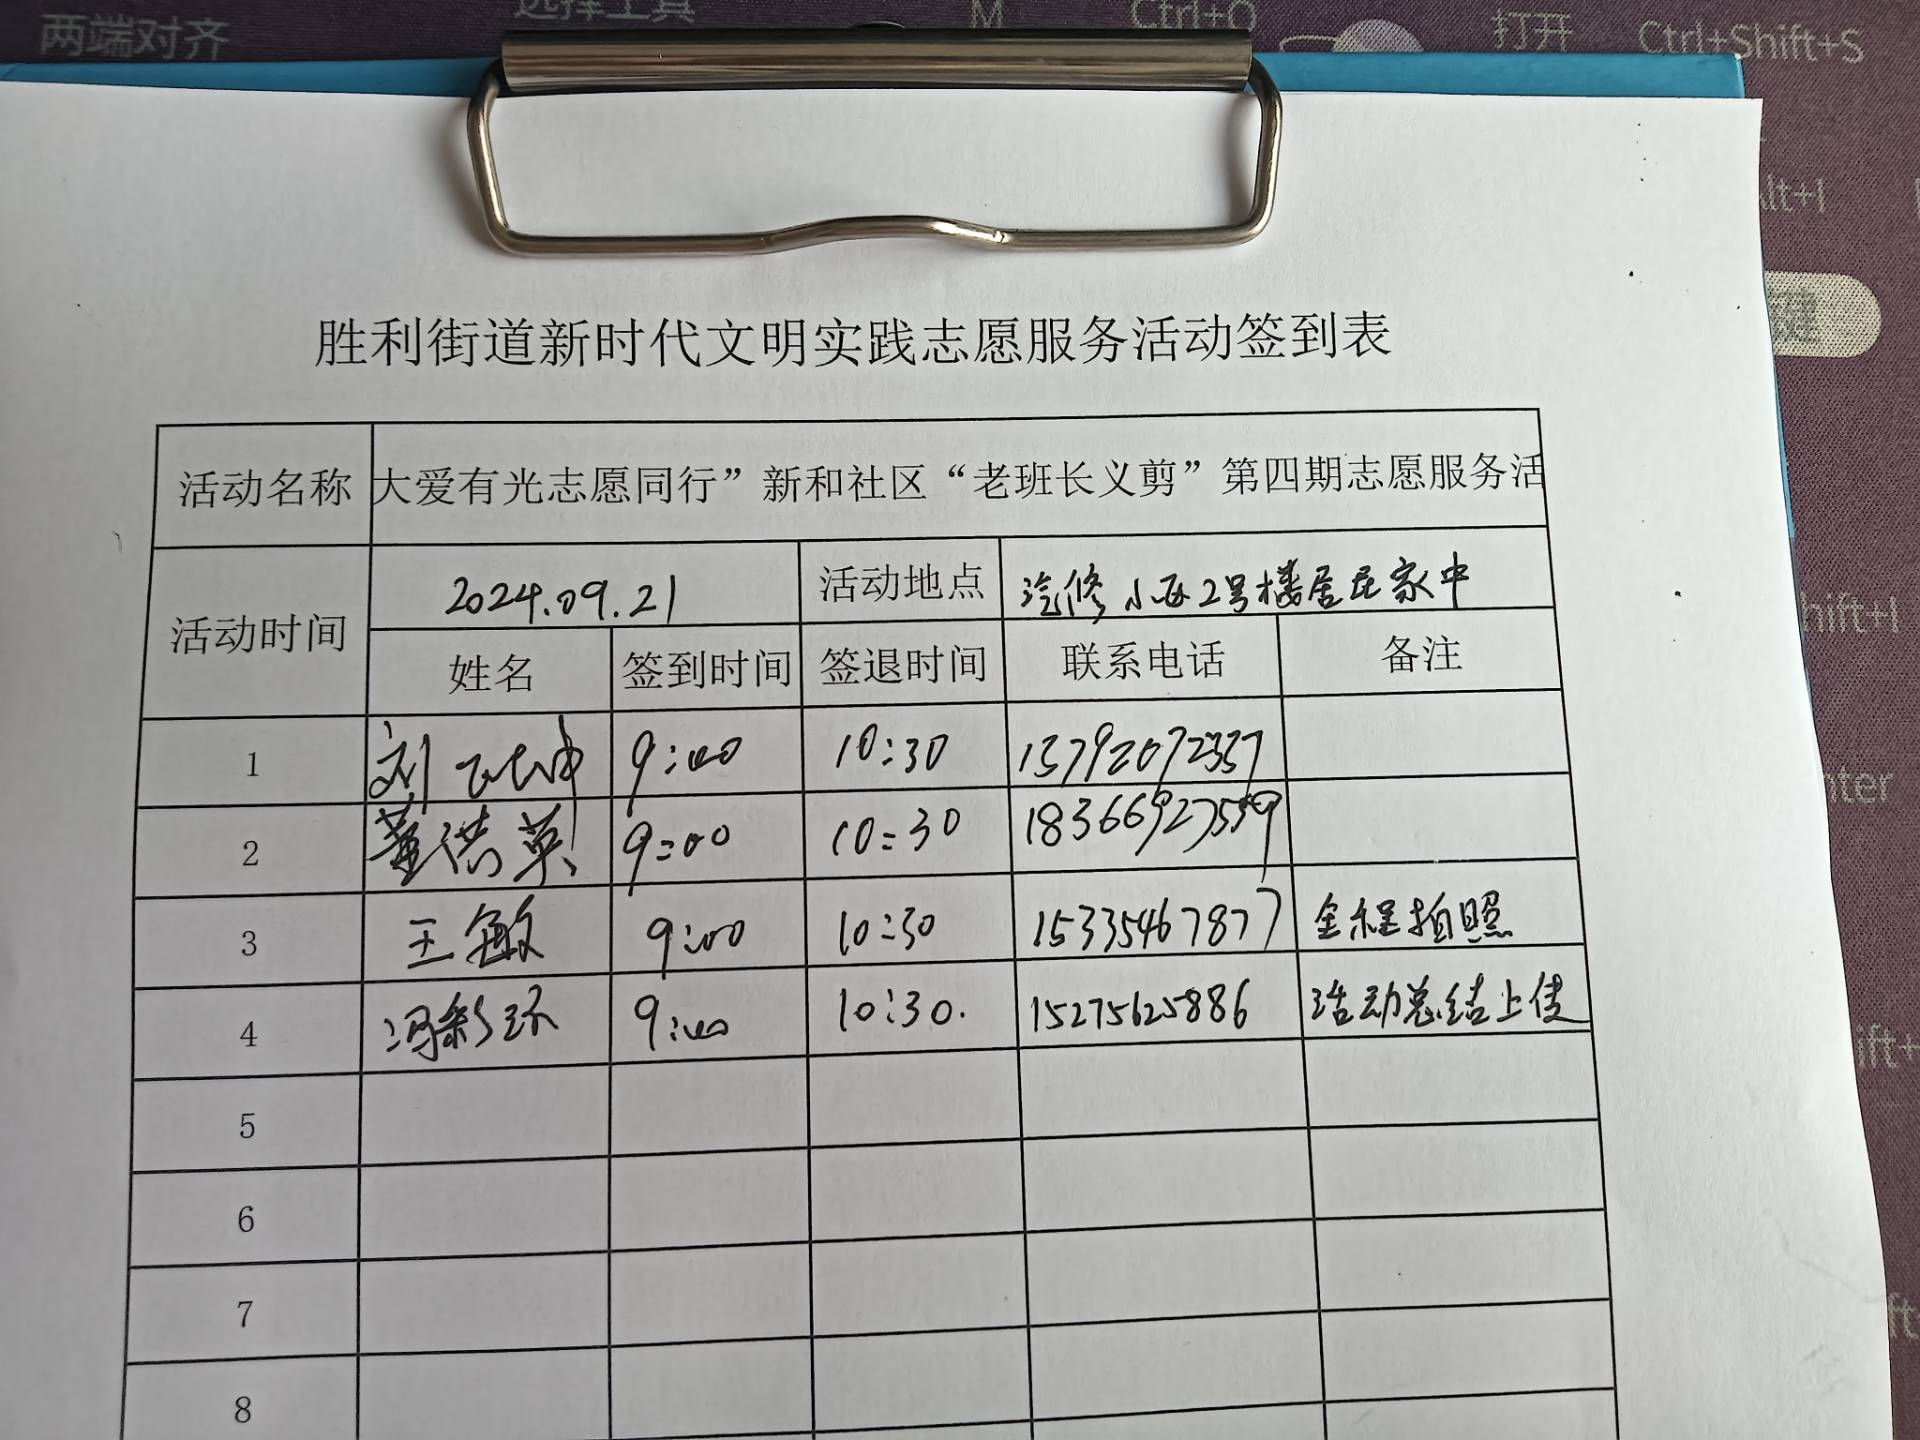 两端对齐 选择工具 M Ctrl+O 打开 Ctrl+Shift+S
胜利街道新时代文明实践志愿服务活动签到表
活动名称 大爱有光志愿同行”新和社区“老班长义剪”第四期志愿服务活
活动时间 2024.09.21 活动地点 汽修小区2号楼居民家中
姓名 签到时间 签退时间 联系电话 备注
1 刘 9:00 10:30 13792072337
2 董洪英 9:00 10:30 18366927559
3 王敏 9:00 10:30 15335467877 全程拍照
4 冯彩环 9:00 10:30. 15275625886 活动总结上传
5
6
7
8